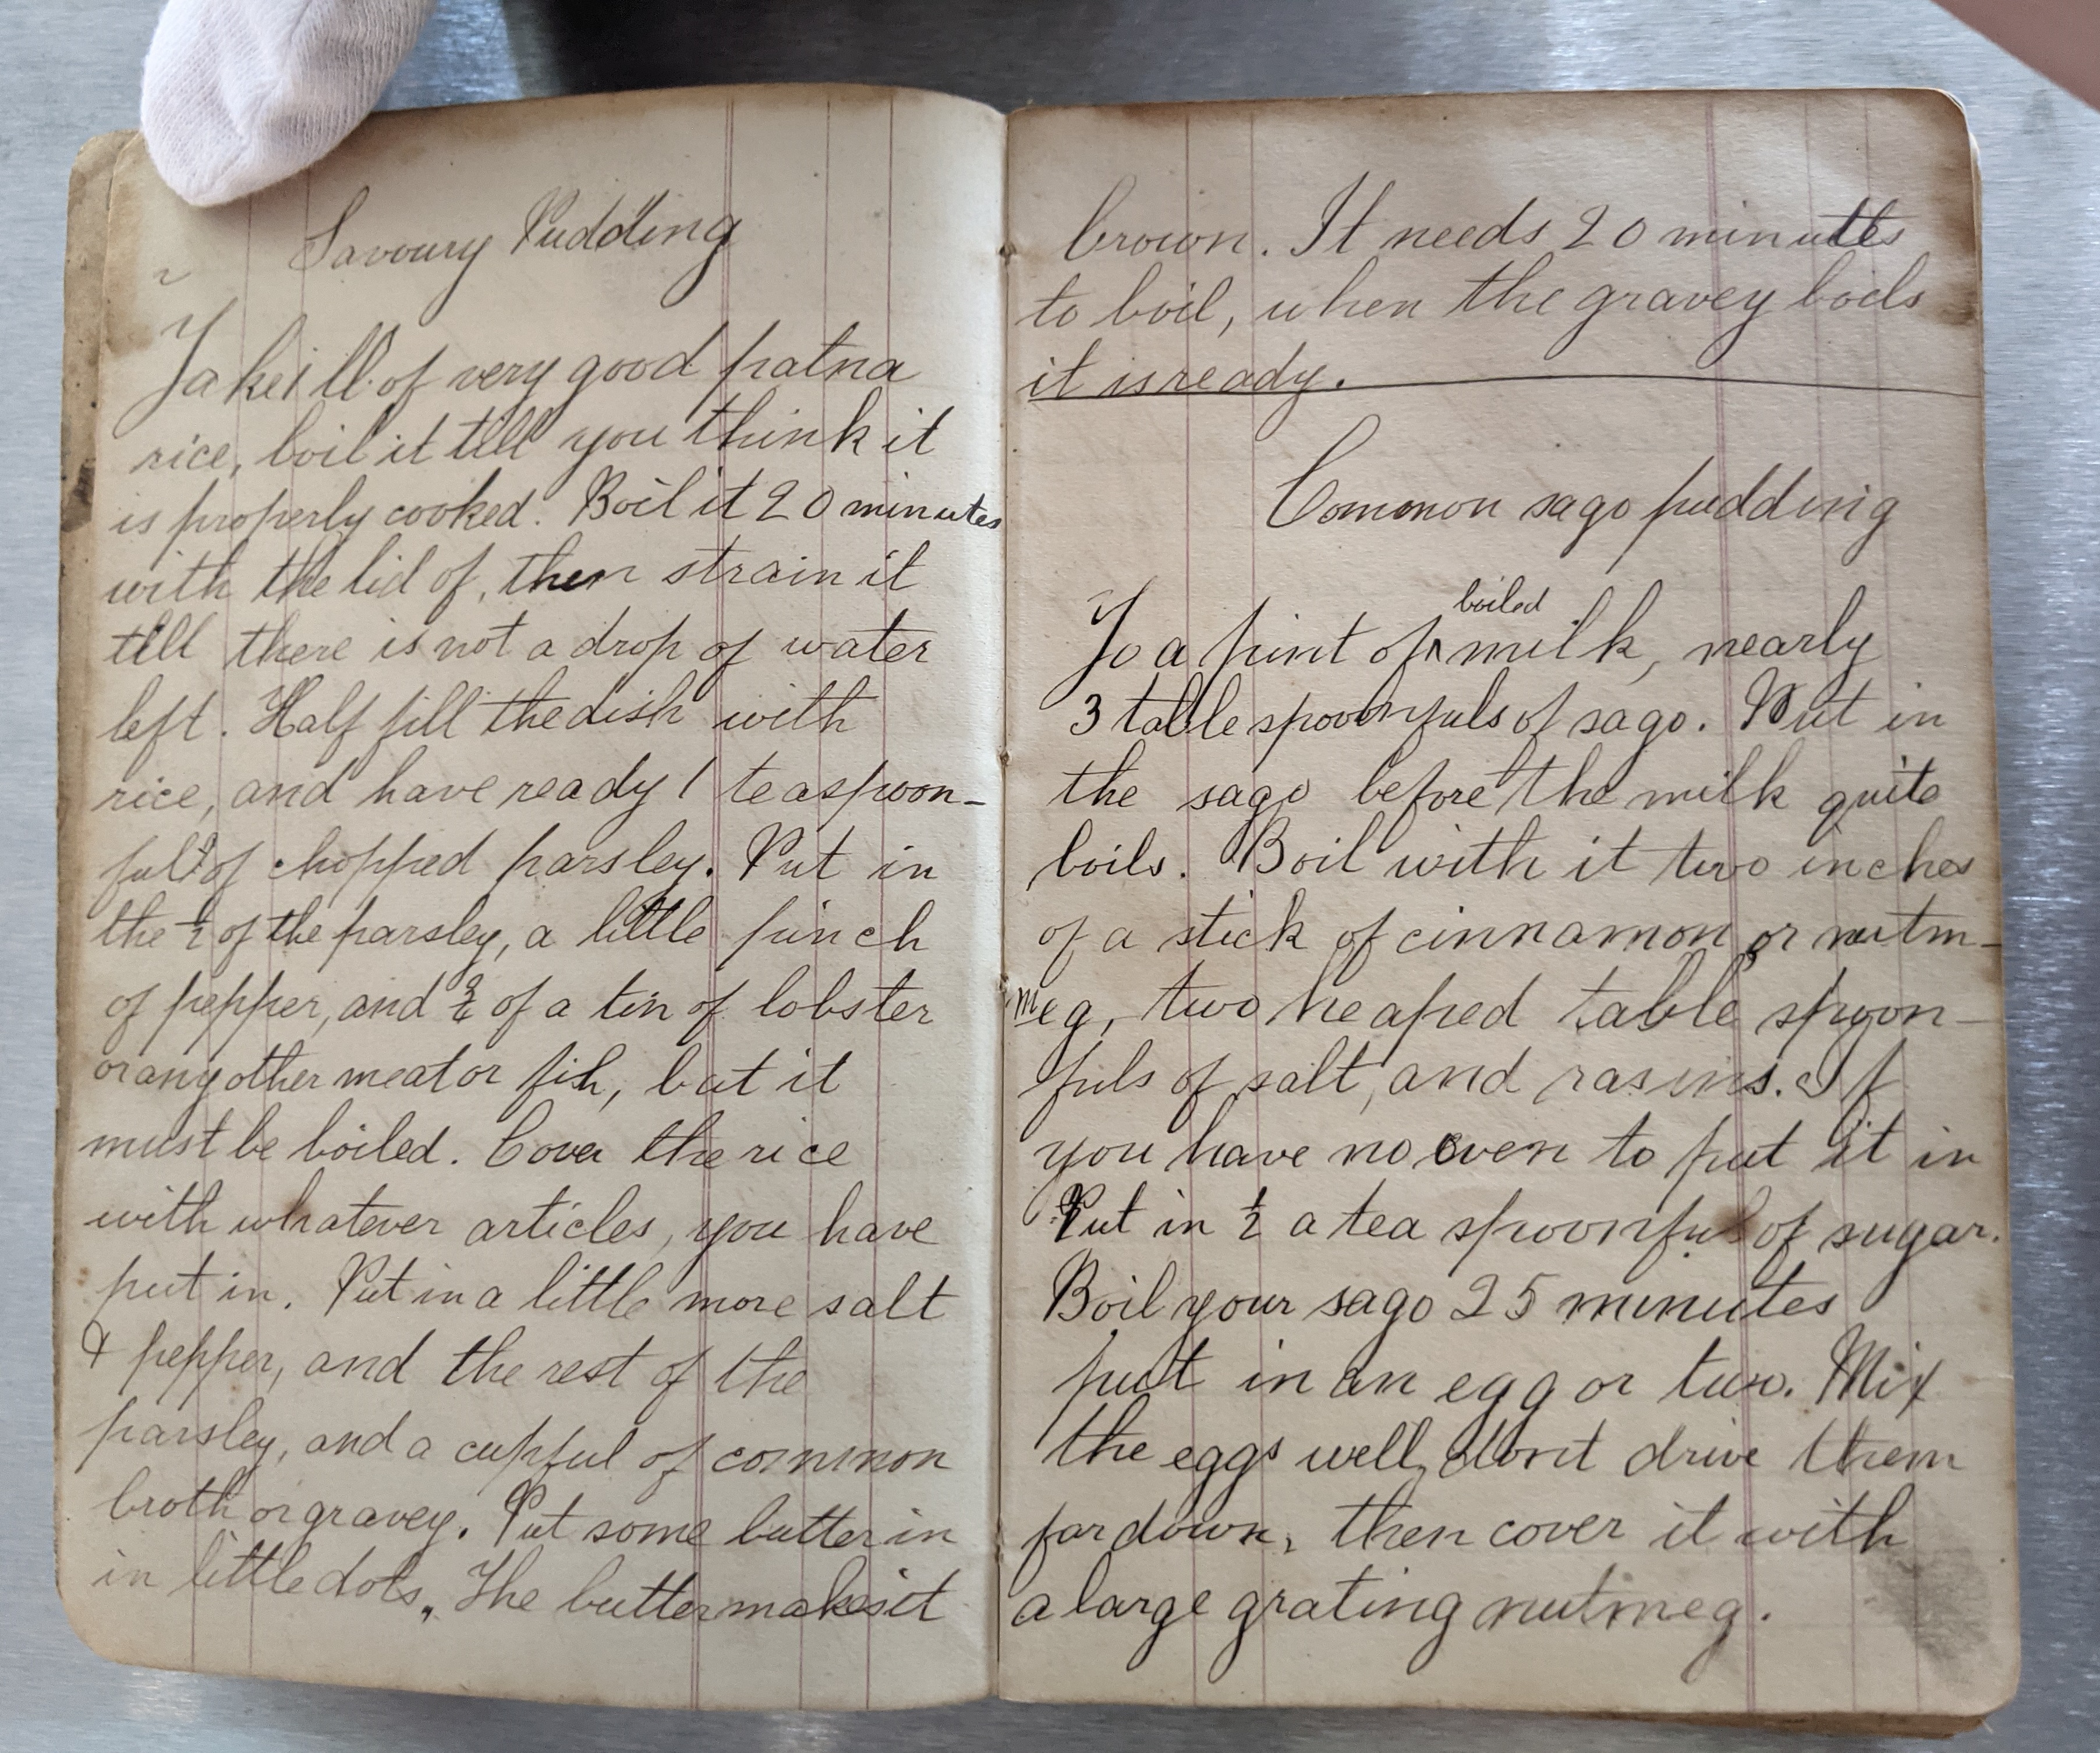 Savoury Pudding
Take 1 lb. of very good patna
rice, boil it till you think it
is properly cooked. Boil it 20 minutes
with the lid of, then strain it
till there is not a drop of water
left. Half fill the dish with
rice, and have ready 1 teaspoon-
ful of chopped parsley. Put in
the ½ of the parsley, a little pinch
of pepper, and of a tin of lobster
or any other meat or fish, but it
must be boiled. Cover the rice
with whatever articles, you have
put in. Put in a little more salt
& pepper, and the rest of the
parsley, and a cupful of common
broth or gravey. Put some butter in
in little dots. The butter makes it
brown. It needs 20 minutes
to boil, when the gravey boils
it is ready.
Common sago pudding
boiled
To a pint of ^ milk, nearly
3 table spoonfuls of sago. Put in
the sago before the milk quite
boils. Boil with it two inches
of a stick of cinnamon or nutm-
meg, two heaped table spoon-
fuls of salt, and rasins. If
you have no oven to put it in
Put in ½ a tea spoonful of sugar.
Boil your sago 25 minutes
put in an egg or two. Mix
the eggs well, dont drive them
far down, then cover it with
a large grating nutmeg.